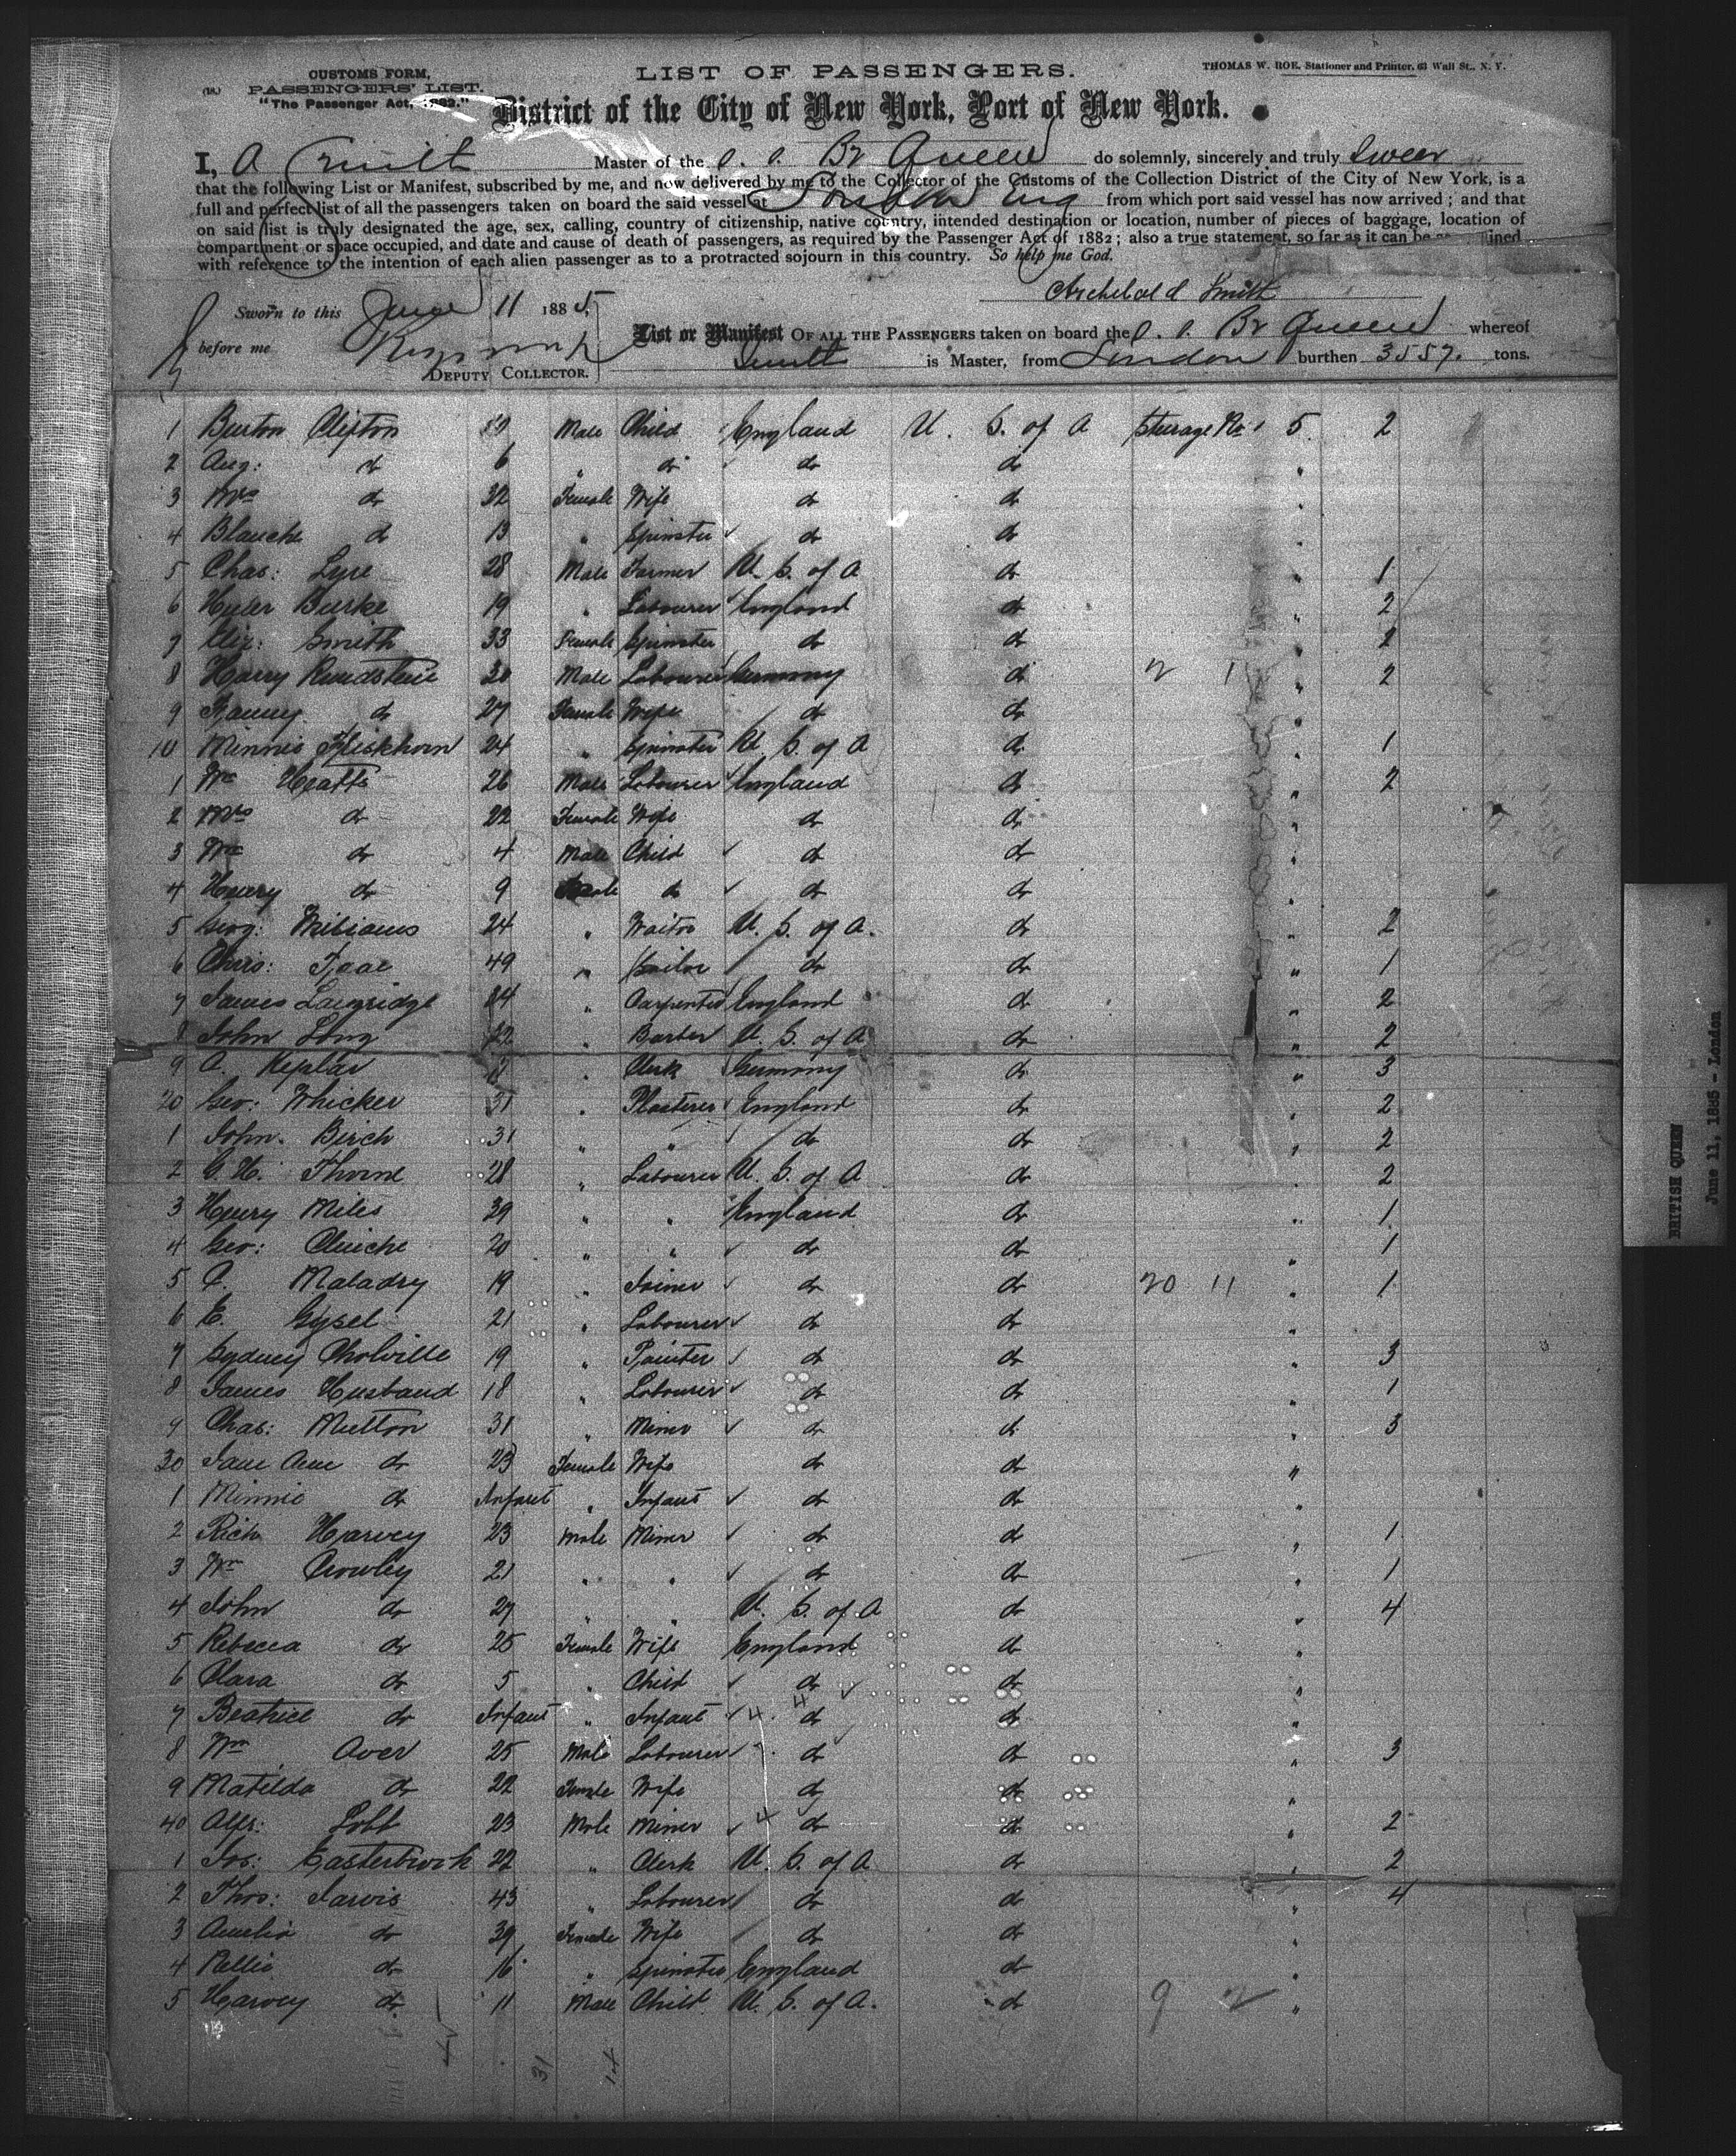 CUSTOMS FORM,
PASSENGERS' LIST.
"The Passenger Act, 1882."
LIST OF PASSENGERS.
THOMAS W. ROE, Stationer and Printer, 63 Wall St., N. Y.
District of the City of New York, Port of New York.
I, A Smith Master of the S. S. Br Queen do solemnly, sincerely and truly Swear
that the following List or Manifest, subscribed by me, and now delivered by me to the Collector of the Customs of the Collection District of the City of New York, is a
full and perfect list of all the passengers taken on board the said vessel at London Eng from which port said vessel has now arrived; and that
on said list is truly designated the age, sex, calling, country of citizenship, native country, intended destination or location, number of pieces of baggage, location of
compartment or space occupied, and date and cause of death of passengers, as required by the Passenger Act of 1882; also a true statement, so far as it can be
with reference to the intention of each alien passenger as to a protracted sojourn in this country. So help me God.
Archibald Smith
Sworn to this June 11 1885,
before me
DEPUTY COLLECTOR.
List or Manifest OF ALL THE PASSENGERS taken on board the S. S. Br Queen whereof
Smith is Master, from London burthen 3557. tons.
1 Burton Clifton Male Child England U. S. of A Sturage No 1 5 2
2 Aug: do 6 " do do do "
3 Mrs do 32 Female Wife do do "
4 Blanch do 13 " Spinster do do "
5 Chas: Lyre 28 Male Farmer U. S. of A do " 1
6 Burke 19 " Labourer England do " 2
7 Eliz: Smith 33 Female Spinster do do " 2
8 Harry Rundstein 30 Male Labourer Germany do 2 1 " 2
9 Fanny do 27 Female Wife do do "
10 Minnie 24 " Spinster U. S. of A do " 1
1 Wm 26 Male Labourer England do " 2
2 Mrs do 22 Female Wife do do "
3 Wm do 4 Male Child do do "
4 Henry do 9 Male do do do "
5 Geog: Williams 24 " Waiter U. S. of A. do " 2
6 Chris: 49 " Sailor do do " 1
7 James Langridge 24 " Carpenter England do " 2
8 John Long " Barber U. S. of A do " 2
9 A. Keplar " Clerk Germany do " 3
20 Geo: Whicker 31 " Plasterer England do " 2
1 John Birch 31 " " do do " 2
2 G. H. Thorne 28 " Labourer U. S. of A do " 2
3 Henry Miles 39 " " England do " 1
4 Geo: 20 " " do do " 1
5 Maladry 19 " Joiner do do 20 11 " 1
6 E. Gysel 21 " Labourer do do "
7 Sydney Cholville 19 " Painter do do " 3
8 James Husband 18 " Labourer do do " 1
9 Chas: Mutton 31 " Miner do do " 3
30 Jane Ann do 23 Female Wife do do "
1 Minnie do Infant " Infant do do "
2 Rich Harvey 23 Male Miner do do " 1
3 Wm Crowley 21 " " do do " 1
4 John do 27 " " U. S. of A do " 4
5 Rebecca do 25 Female Wife England do "
6 Clara do 5 " Child do do "
7 Beatrice do Infant " Infant do do "
8 Wm Over 25 Male Labourer do do " 3
9 Matilda do 22 Female Wife do do "
40 Alfr: Lobb 23 Male Miner do do " 2
1 Jos: Easterbrook 22 " Clerk U. S. of A do " 2
2 Thos: Jarvis 43 " Labourer do do " 4
3 Amelia do 39 Female Wife do do "
4 Nellie do 16 " Spinster England do "
5 Harvey do 11 Male Child U. S. of A. do 9 2 "
31 14
BRITISH QUEEN
June 11, 1885 - London